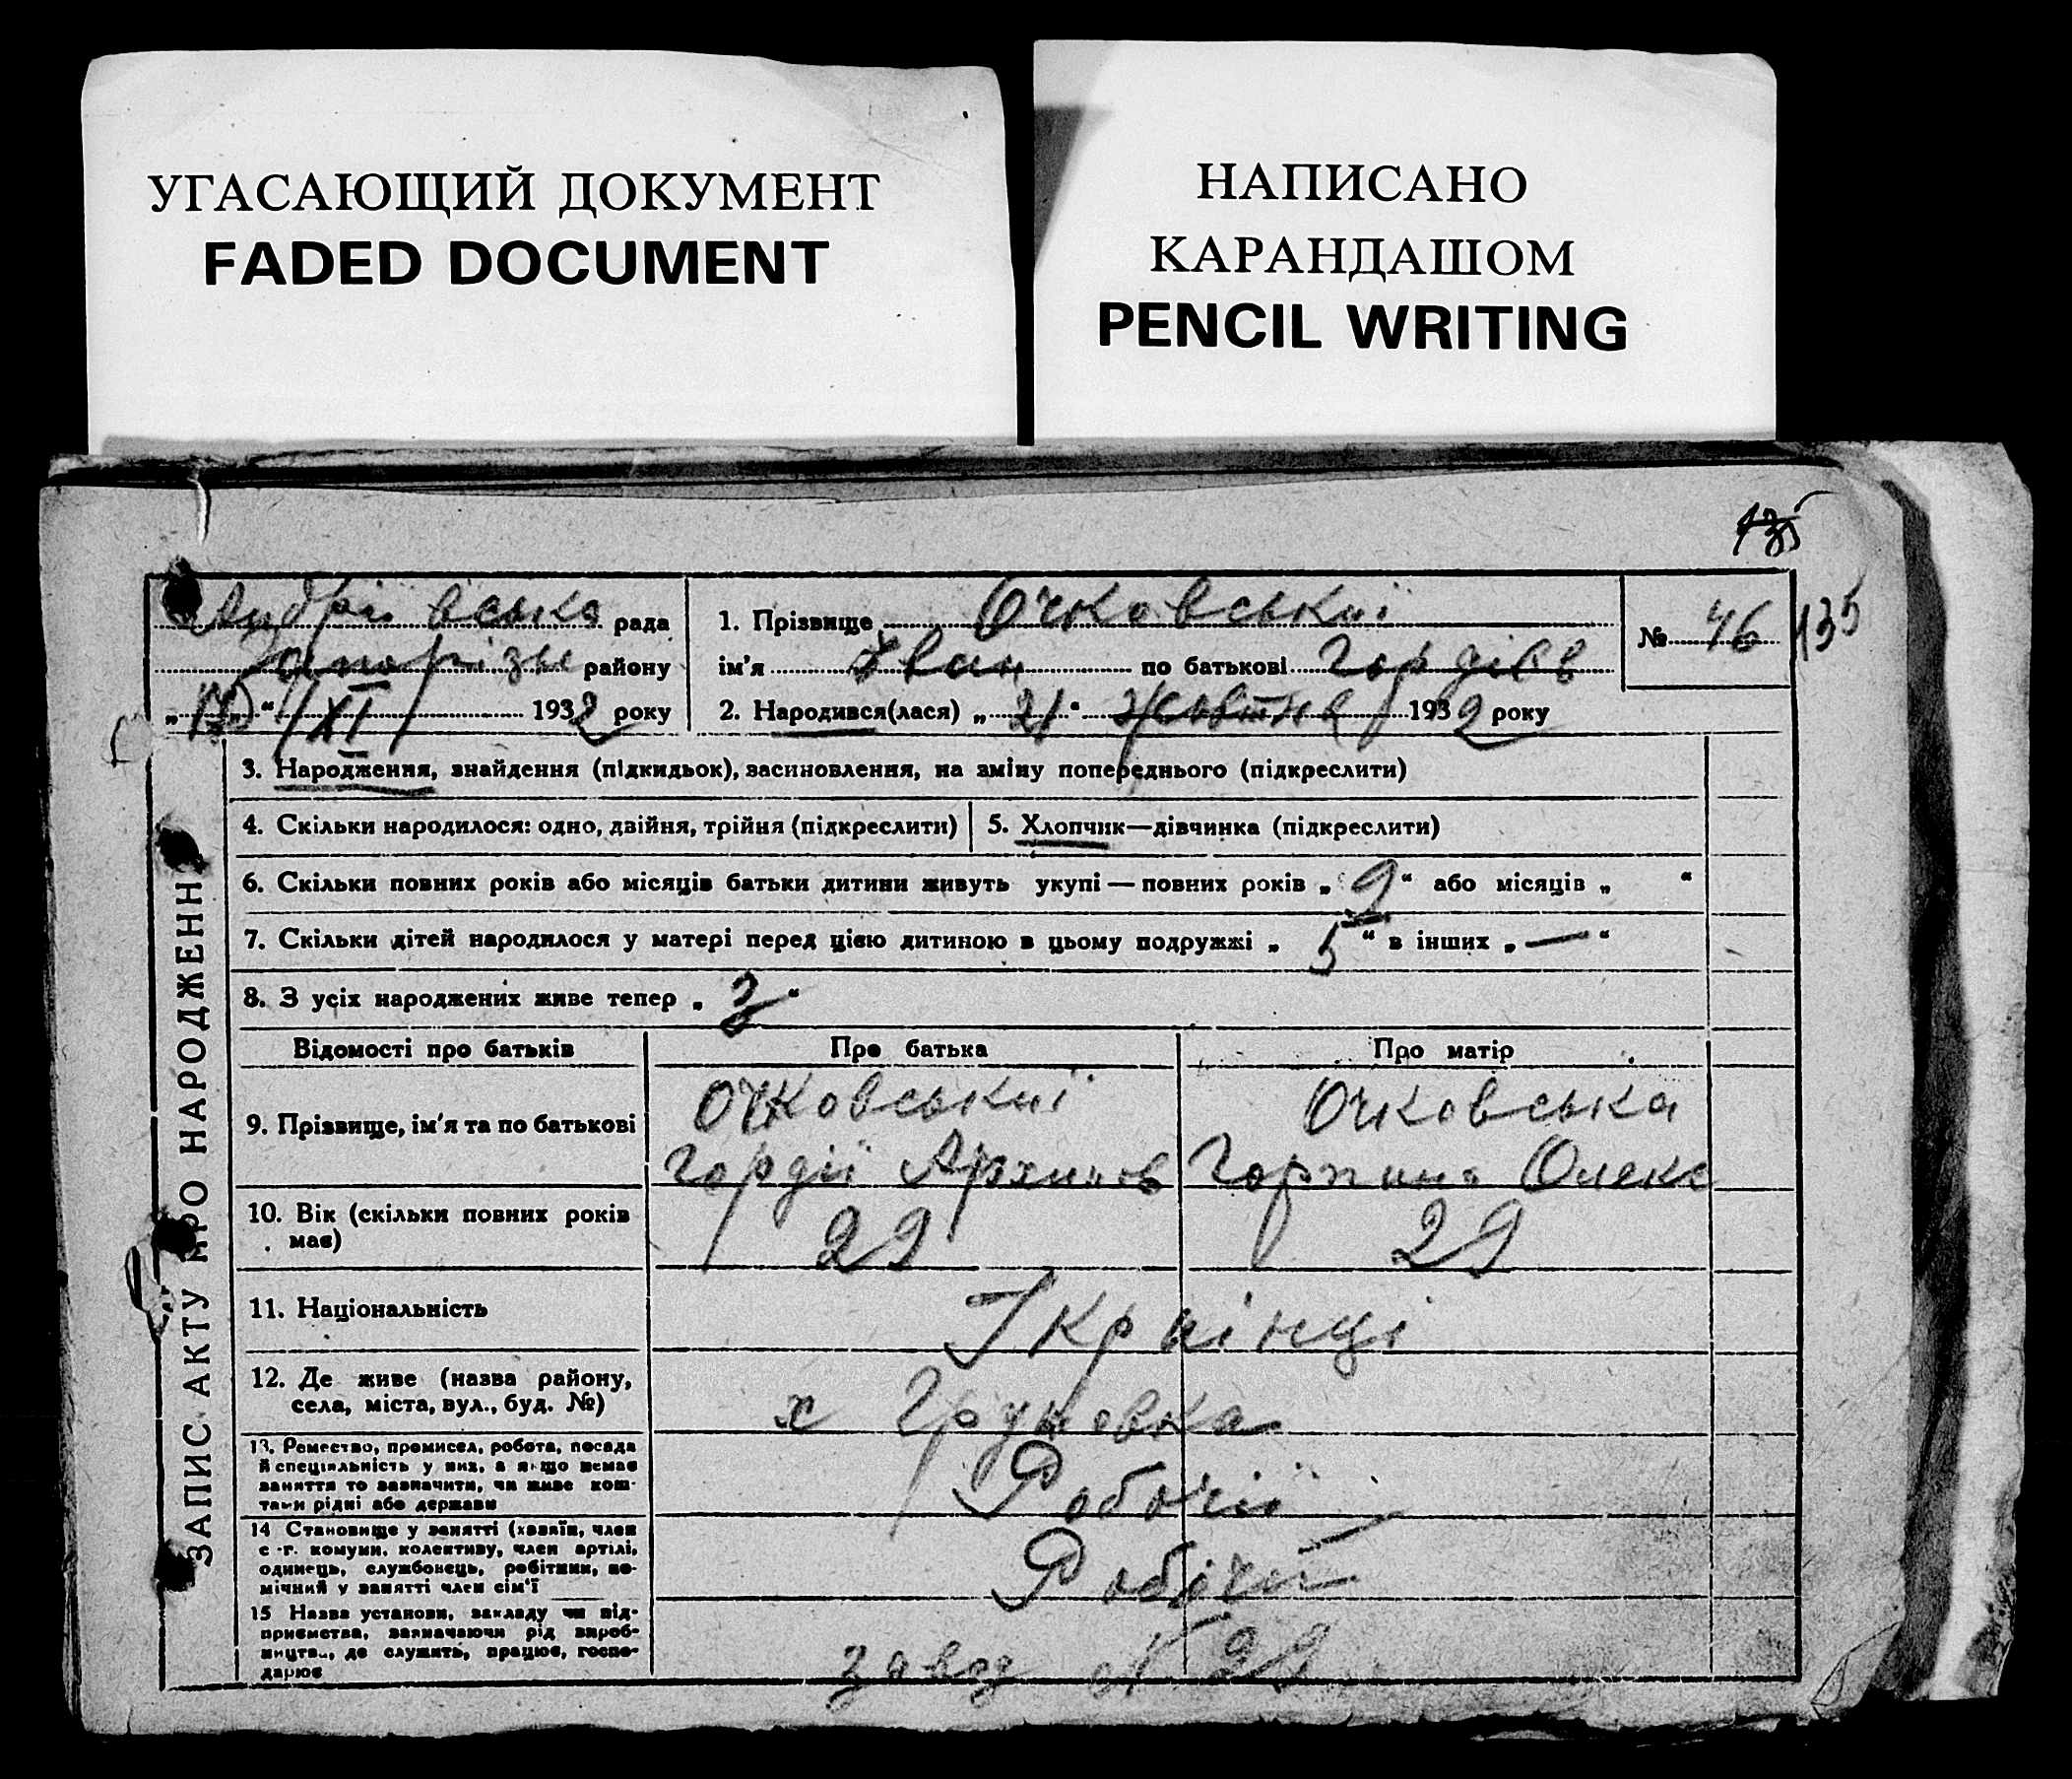 УГАСАЮЩИЙ ДОКУМЕНТ
FADED DOCUMENT
НАПИСАНО
КАРАНДАШОМ
PENCIL WRITING
135
Андріївська рада
району
XI 1932 року
1. Прізвище Очковський
ім'я Іван по батькові Гордієв
2. Народився(лася) „21“ Жовтня 1932 року
№ 46
135
ЗАПИС АКТУ ПРО НАРОДЖЕННЯ
3. Народження, знайдення (підкидьок), засиновлення, на зміну попереднього (підкреслити)
4. Скільки народилося: одно, двійня, трійня (підкреслити)
5. Хлопчик—дівчинка (підкреслити)
6. Скільки повних років або місяців батьки дитини живуть укупі — повних років „9“ або місяців „ “
7. Скільки дітей народилося у матері перед цією дитиною в цьому подружжі „5“ в інших „—“
8. З усіх народжених живе тепер „3“
Відомості про батьків
Про батька
Про матір
9. Прізвище, ім'я та по батькові
Очковський
Гордій Архипов
Очковська
Горпина Олекс
10. Вік (скільки повних років
має)
29
29
11. Національність
Українці
12. Де живе (назва району,
села, міста, вул., буд. №)
х
13. Ремество, промисел, робота, посада
й спеціяльність у них, а якщо немає
заняття то зазначити, чи живе кош-
тами рідні або держави
Робочій
14 Становище у занятті (хазяїн, член
с.-г. комуни, колективу, член артілі,
одинець, службовець, робітник, по-
мічний у занятті член сім'ї
Робочий
15 Назва установи, закладу чи під-
приємства, зазначаючи рід вироб-
ництва, де служить, працює, госпо-
дарює
завод № 29